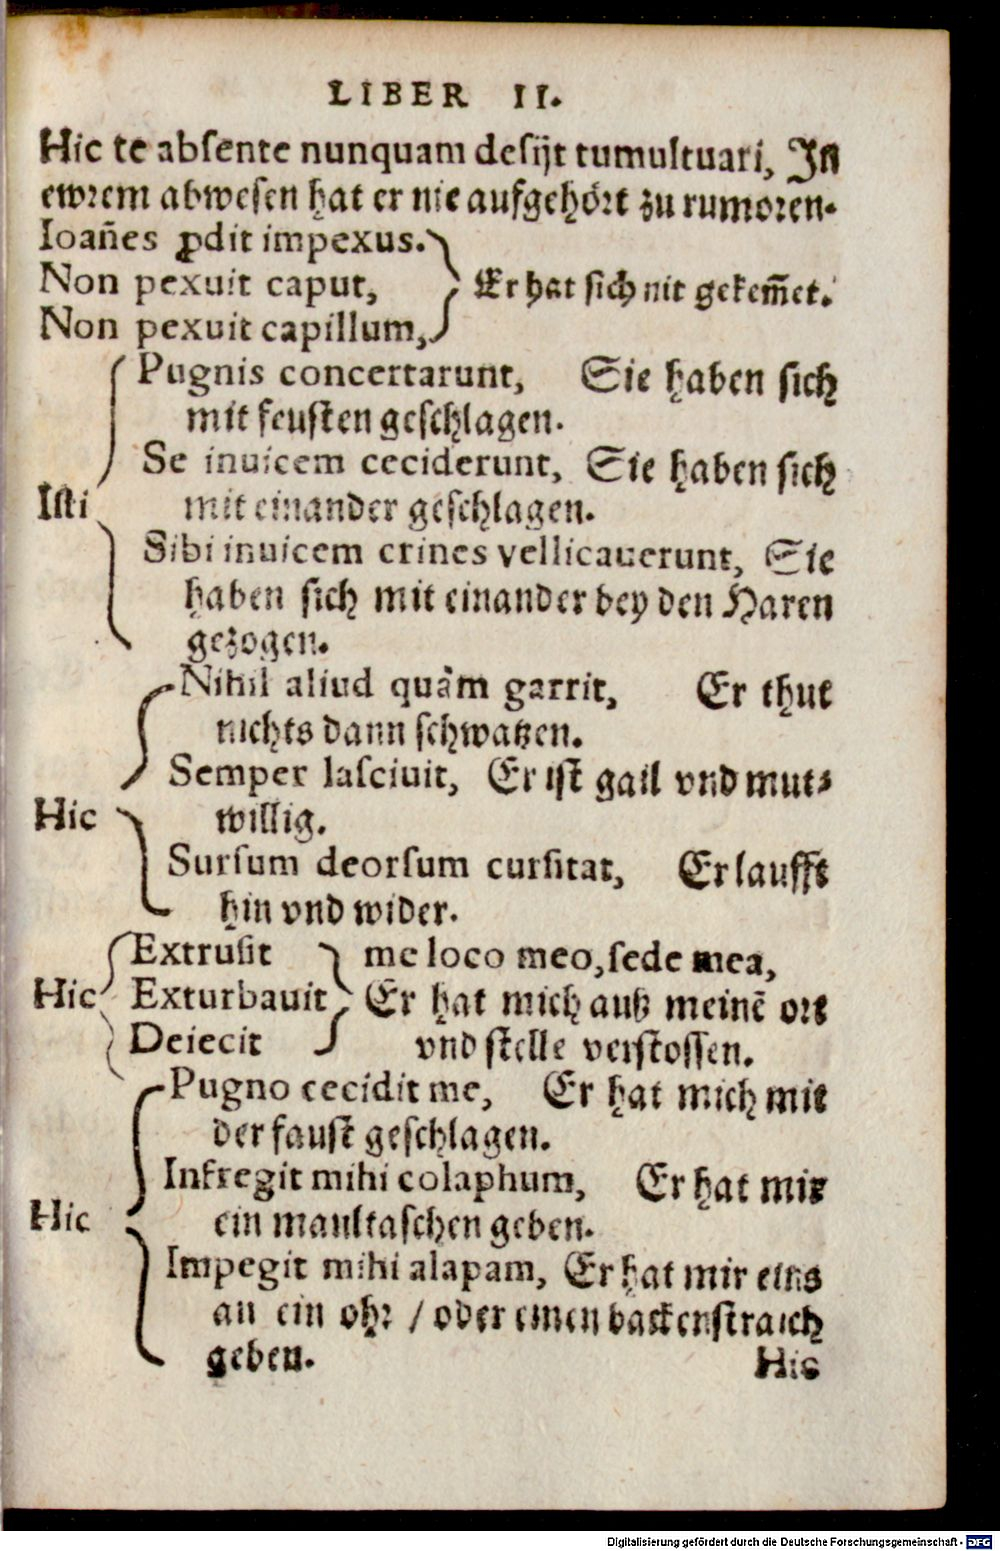 LIBER II.
Hic te absente nunquam desijt tumultuari, In
ewrem abwesen hat er nie aufgehört zu rumoren.
Ioañes ꝓdit impexus.
Non pexuit caput, Er hat sich nit gekem̃et.
Non pexuit capillum,
Pugnis concertarunt, Sie haben sich
mit feusten geschlagen.
Se inuicem ceciderunt, Sie haben sich
Isti mit einander geschlagen.
Sibi inuicem crines vellicauerunt, Sie
haben sich mit einander bey den Haren
gezogen.
Nihil aliud quàm garrit, Er thut
nichts dann schwatzen.
Semper lasciuit, Er ist gail vnd mut⸗
Hic willig.
Sursum deorsum cursitat, Er laufft
hin vnd wider.
Extrusit me loco meo, sede mea,
Hic Exturbauit Er hat mich auß meinẽ ort
Deiecit vnd stelle verstossen.
Pugno cecidit me, Er hat mich mit
der faust geschlagen.
Infregit mihi colaphum, Er hat mir
Hic ein maultaschen geben.
Impegit mihi alapam, Er hat mir eins
an ein ohr / oder einen backenstraich
geben. Hic
Digitalisierung gefördert durch die Deutsche Forschungsgemeinschaft - DFG